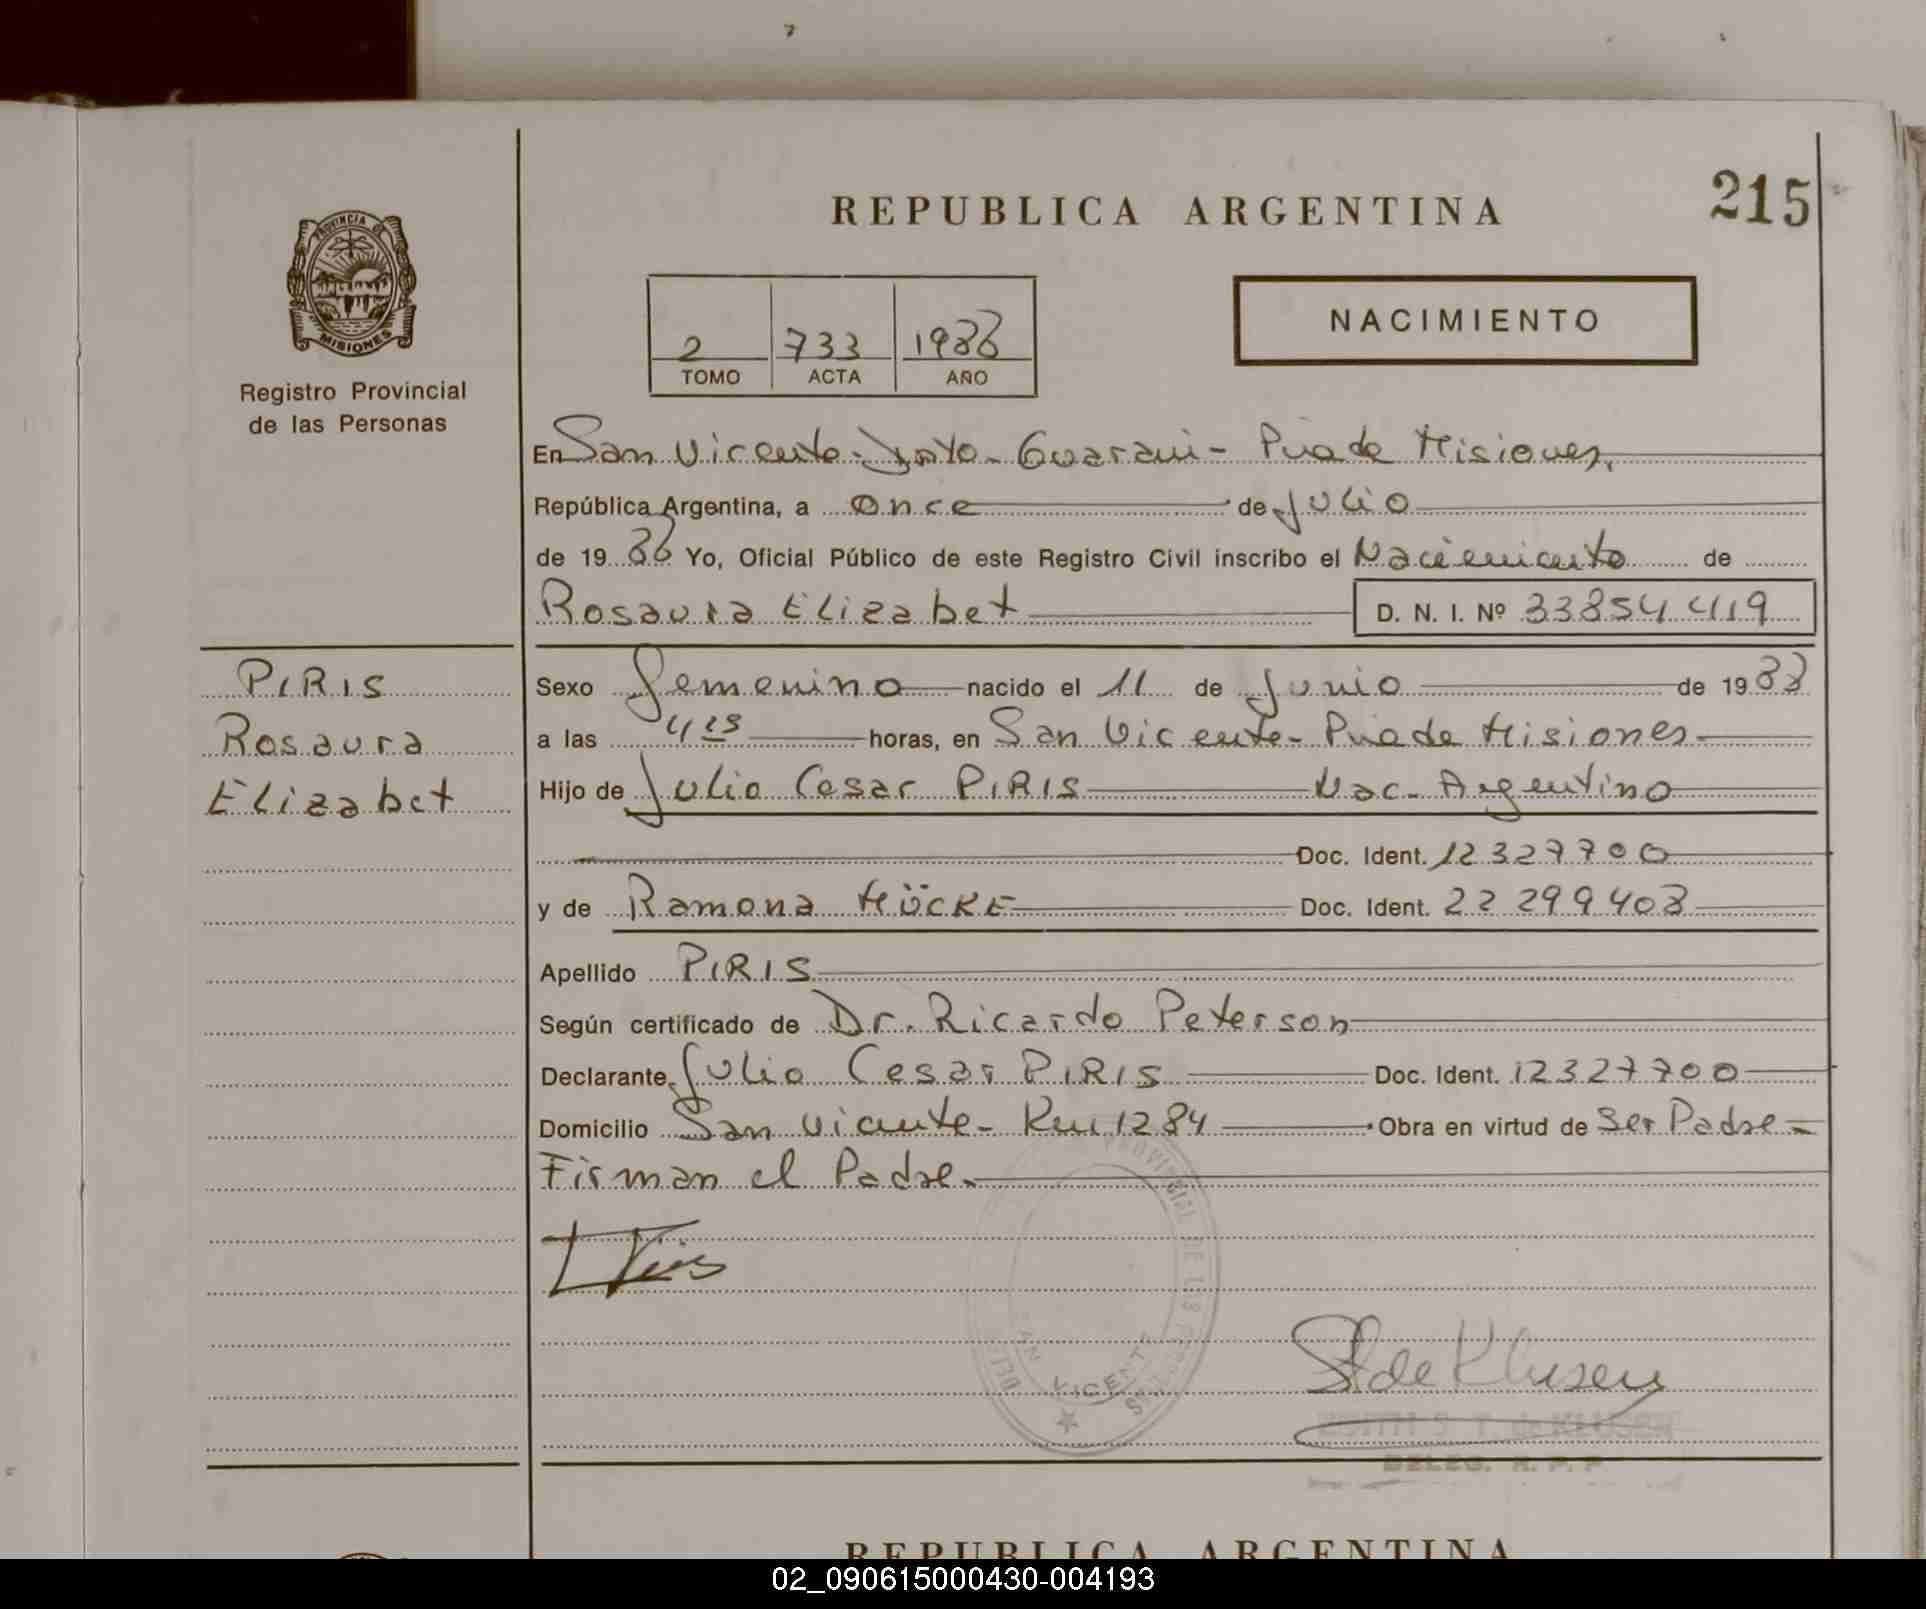 REPUBLICA ARGENTINA
215
PROVINCIA DE
MISIONES
Registro Provincial
de las Personas
2 733 1988
TOMO ACTA AÑO
NACIMIENTO
En San Vicente - Dpto - Guarani - Pcia de Misiones.
República Argentina, a once de Julio
de 19 88 Yo, Oficial Público de este Registro Civil inscribo el Nacimiento de
Rosaura Elizabet D. N. I. Nº 33854419
PIRIS
Rosaura
Elizabet
Sexo Femenino nacido el 11 de Junio de 19 88
a las 4 15 horas, en San Vicente - Pcia de Misiones
Hijo de Julio Cesar PIRIS Nac - Argentino
Doc. Ident. 12327700
y de Ramona HÜCKE Doc. Ident. 22299408
Apellido PIRIS
Según certificado de Dr. Ricardo Peterson
Declarante Julio Cesar PIRIS Doc. Ident. 12327700
Domicilio San Vicente - Km 1284 Obra en virtud de Ser Padre -
Firman el Padre.
SAN VICENTE
de Klusen
DELEG. R. P. P.
REPUBLICA ARGENTINA
02_090615000430-004193